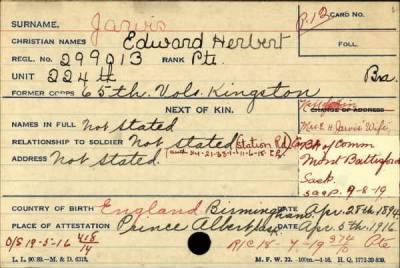 SURNAME. Jarvis P.12 CARD NO.
CHRISTIAN NAMES Edward Herbert FOLL.
REGL. NO. 299013 RANK Pte.
UNIT 224th Bra.
FORMER CORPS 65th. Vols. Kingston
NEXT OF KIN. CHANGE OF ADDRESS
NAMES IN FULL Not stated Mrs E H Jarvis' Wife,
RELATIONSHIP TO SOLDIER Not stated (Station Rd) of Comm
ADDRESS Not stated. Mont Battleford
Sask.
9-8-19
COUNTRY OF BIRTH England Birmingham DATE Apr. 28th 1894
PLACE OF ATTESTATION Prince Albert DATE Apr. 5th 1916
O/S 19-5-16 418/14 R/C 18-7-19 374/10 Pte
L. L. 90—M. & D. 6315. M. F. W. 22. H. Q. 1772-39-839.